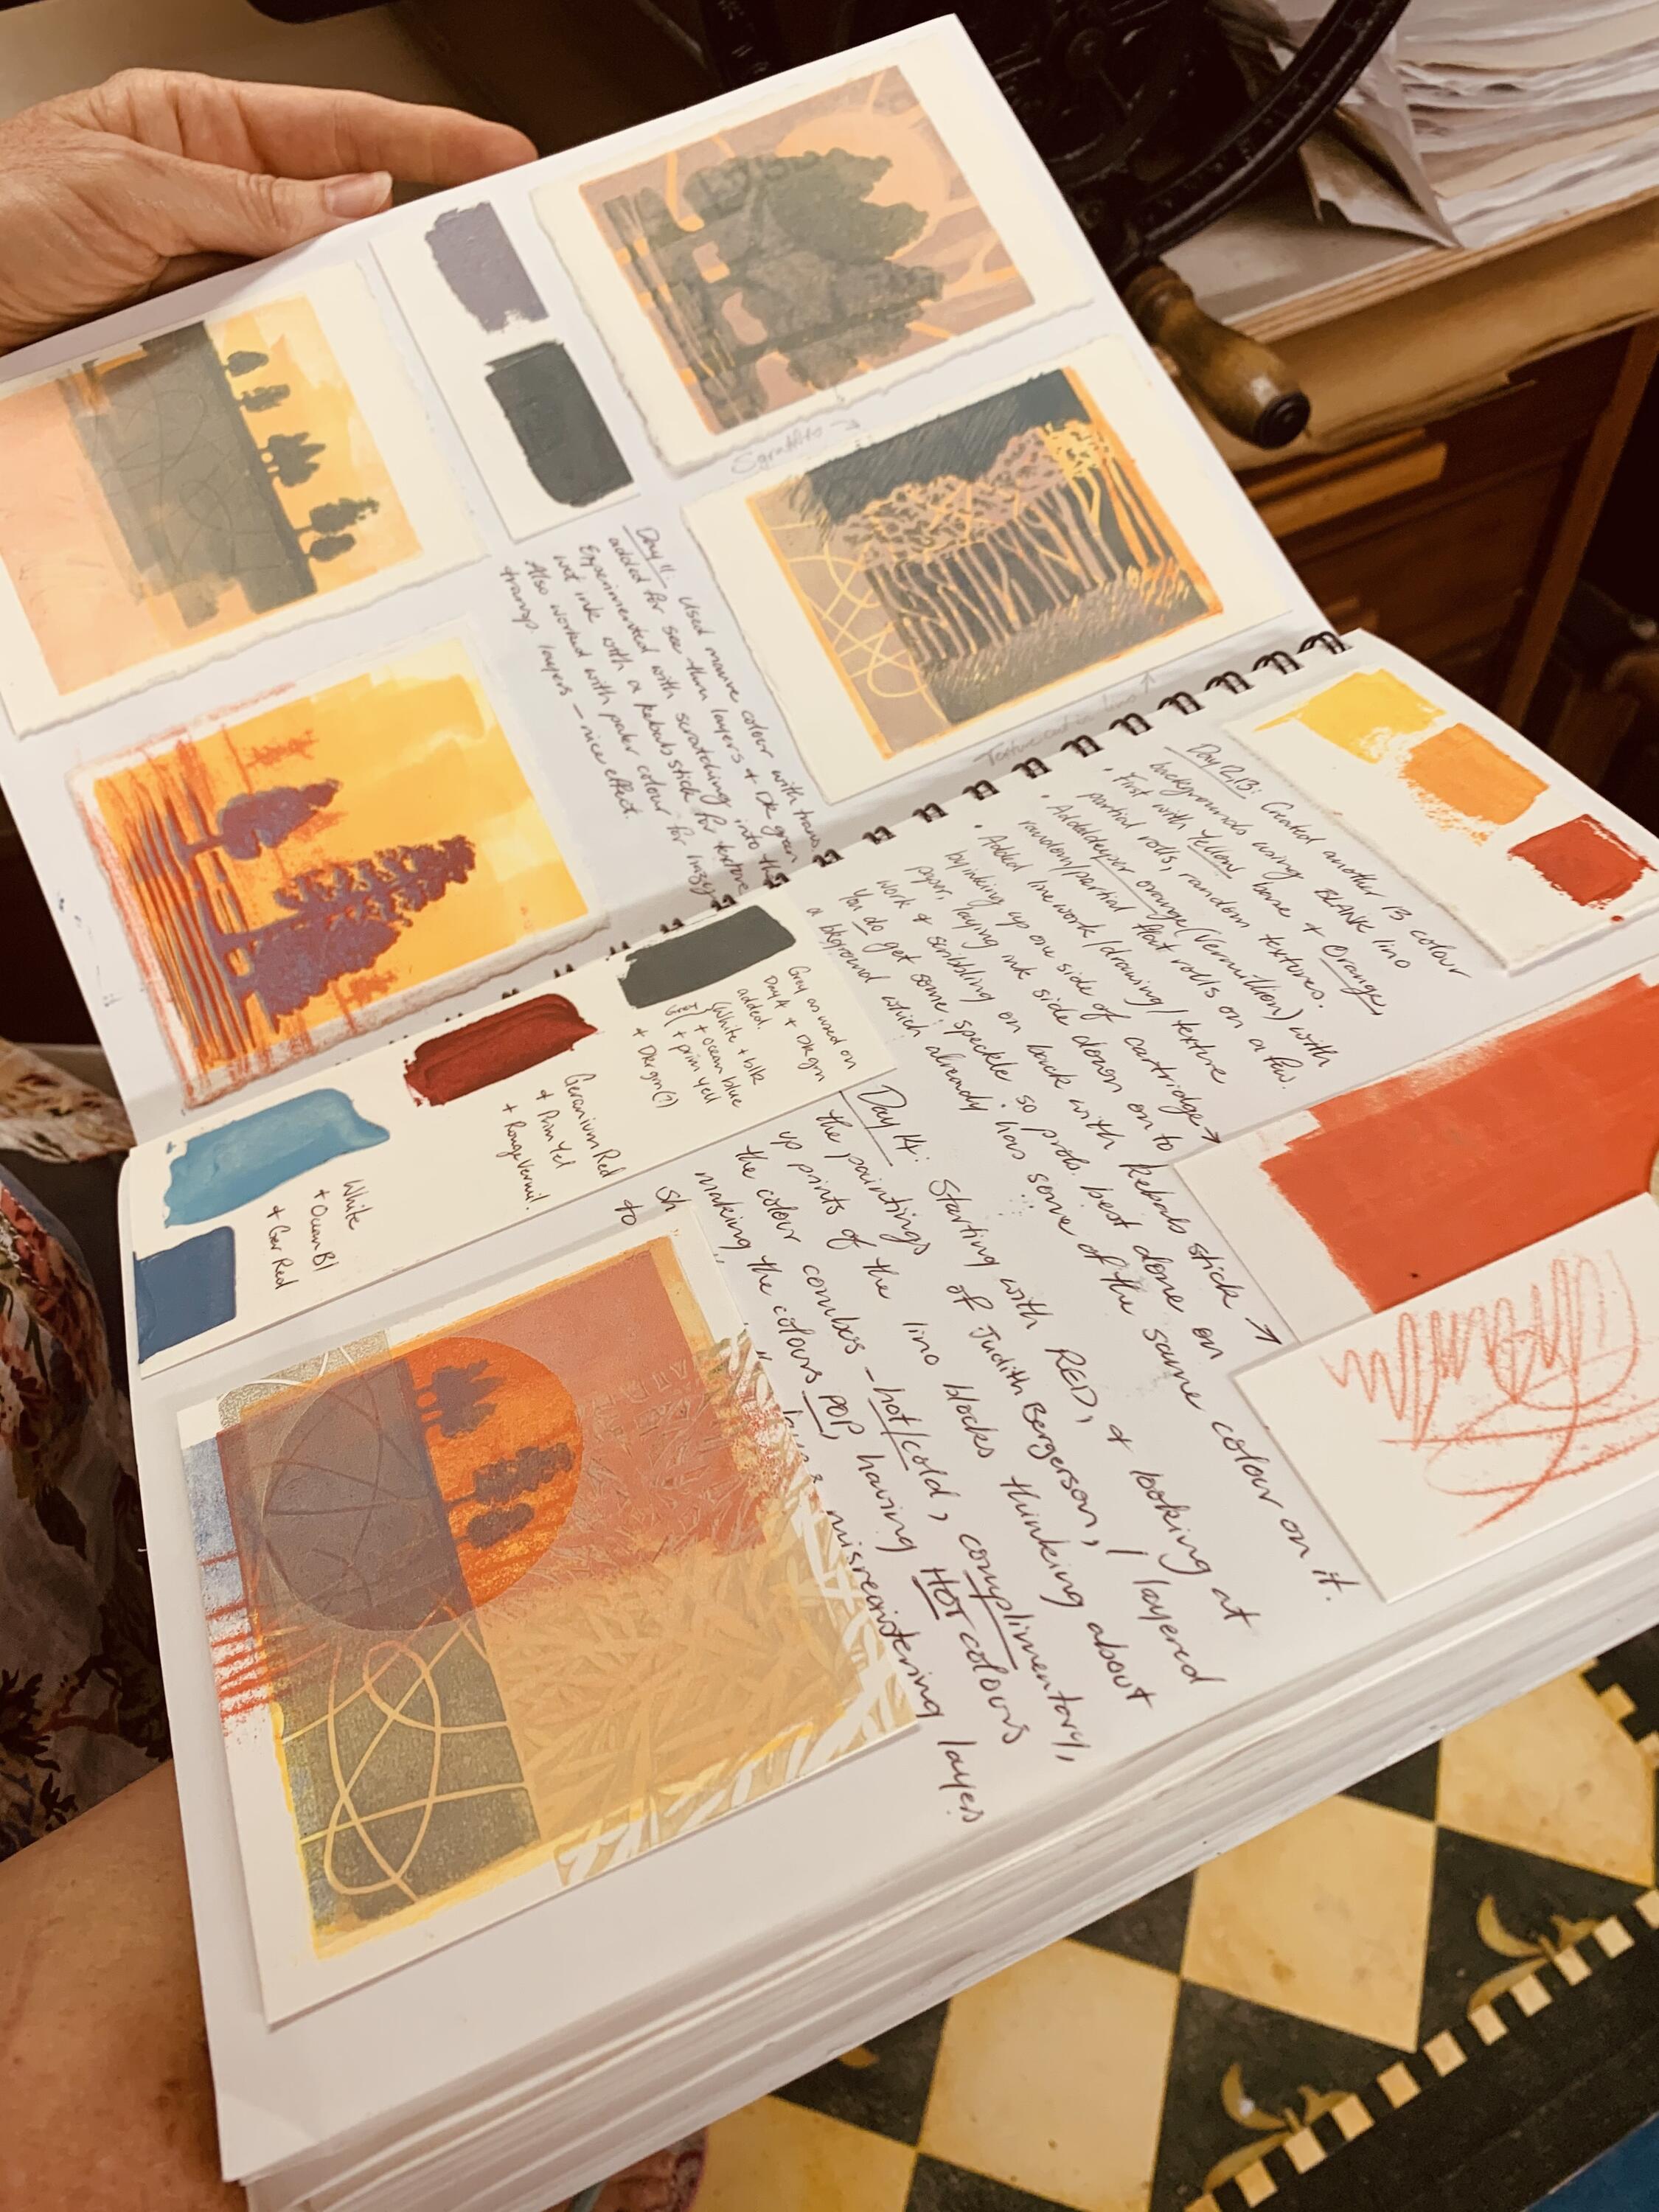 Sgrafitto →
Day 11: Used mauve colour with trans.
added for see-thru layers + DK green
Experimented with scratching into the
wet ink with a kebab stick for texture
Also worked with paler colour for hazy
transp. layers – nice effect.
Texture cut in lino
Day 12, 13: Created another 13 colour
backgrounds using BLANK lino
• First with Yellow base + Orange,
partial rolls, random textures.
• Added deeper orange (Vermillion) with
random/partial flat rolls on a few.
• Added linework/drawing/texture
by inking up one side of cartridge →
paper, laying ink side down on to
work & scribbling on back with kebab stick →
You do get some speckle so prob. best done on
a bkground which already has some of the same colour on it.
Gray as used on
Day 4 + DK grn
added.
(White + blk
+ ocean blue
+ prim yell
+ DK grn (?)
Geranium Red
+ Prim Yel
+ Rouge Vermil.
White
+ Ocean Bl
+ Ger Red
Day 14: Starting with RED, + looking at
the paintings of Judith Bergerson, I layered
up prints of the lino blocks thinking about
the colour combos – hot/cold, complimentary,
making the colours POP, having HOT colours
sh
misregistering layers
to